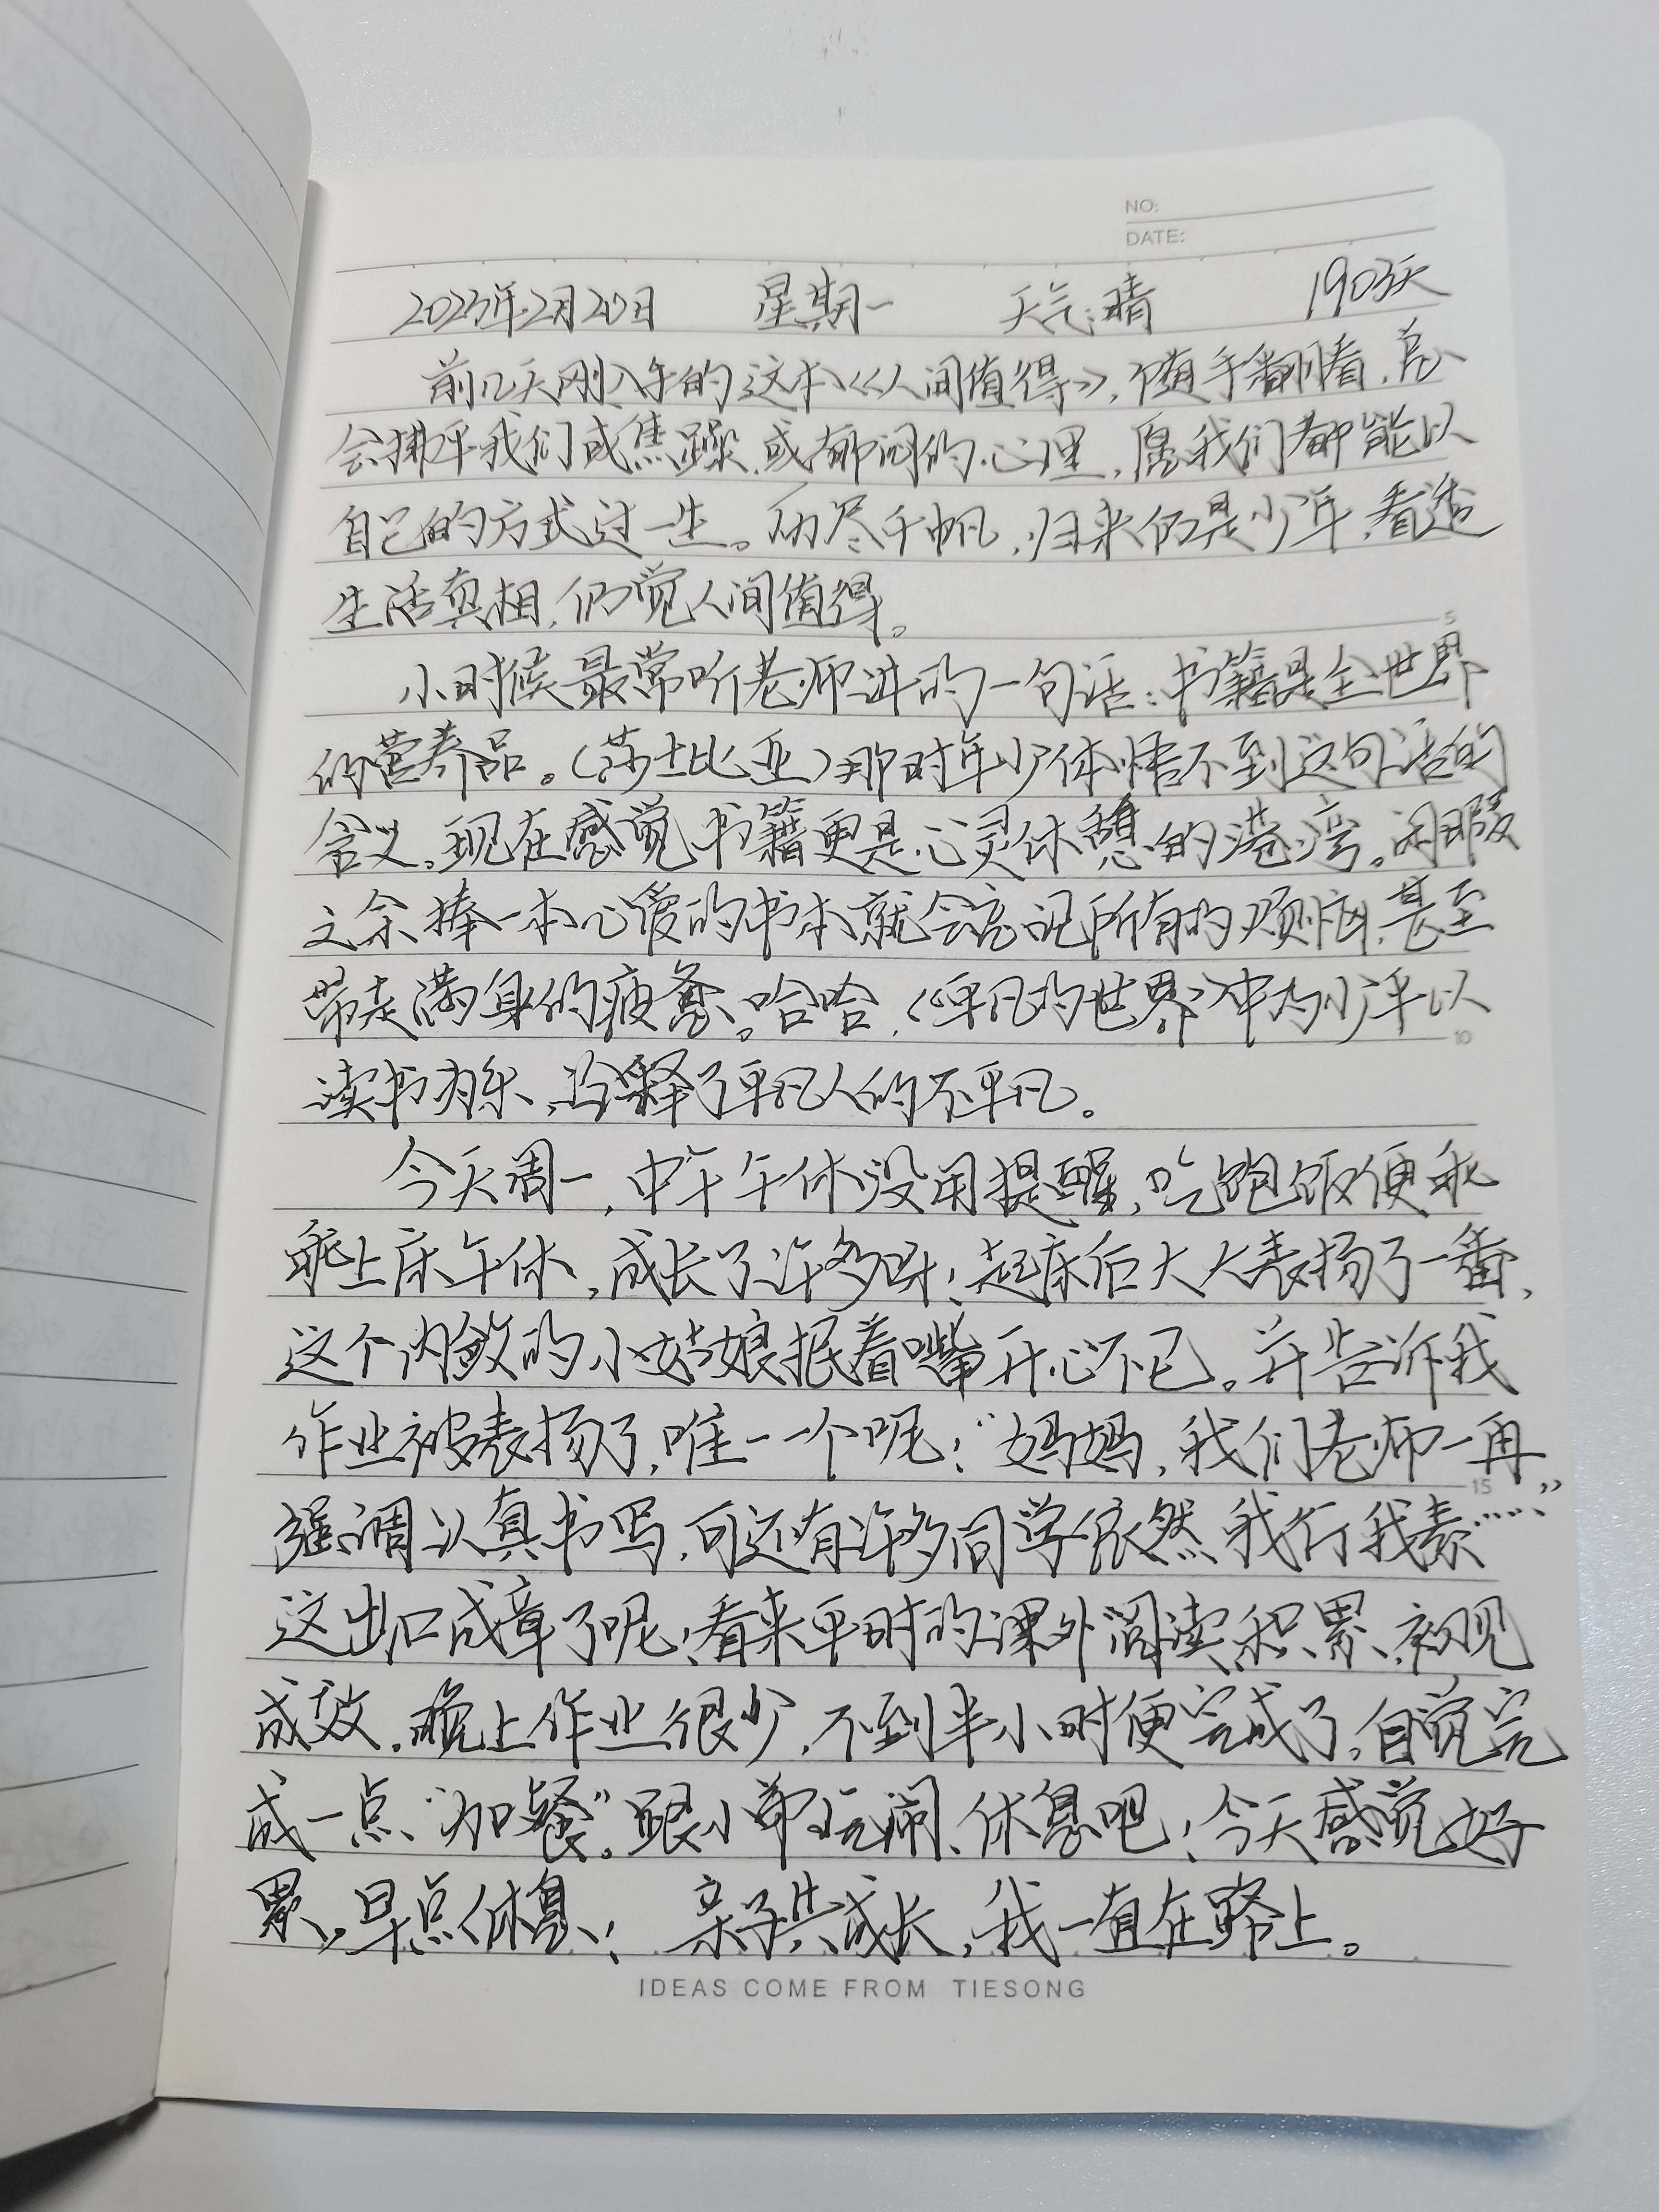 NO:
DATE:
2023年2月20日 星期一 天气:晴 1903天
前几天刚入手的这本《人间值得》,随手翻看,总
会抚平我们或焦躁,或郁闷的心理,愿我们都能以
自己的方式过一生。历尽千帆,归来仍是少年,看透
生活真相,仍觉人间值得。
小时候最常听老师讲的一句话:书籍是全世界
的营养品。(莎士比亚)那时年少体悟不到这句话的
含义。现在感觉书籍更是心灵休憩的港湾。闲暇
之余捧一本心爱的书本就会忘记所有的烦恼,甚至
带走满身的疲惫。哈哈,《平凡的世界》中的少平以
读书为乐,诠释了平凡人的不平凡。
今天周一,中午午休没用提醒,吃饱饭便乖
乖上床午休,成长了许多呀!起床后大大表扬了一番,
这个内敛的小姑娘抿着嘴开心不已。并告诉我
作业被表扬了,唯一一个呢!“妈妈,我们老师一再
强调认真书写,可还有许多同学依然我行我素……”
这出口成章了呢!看来平时的课外阅读、积累、初见
成效。晚上作业很少,不到半小时便完成了。自觉完
成一点“加餐”。跟小弟玩闹、休息吧!今天感觉好
累,早点休息! 亲子共成长,我一直在路上。
5
10
15
IDEAS COME FROM TIESONG